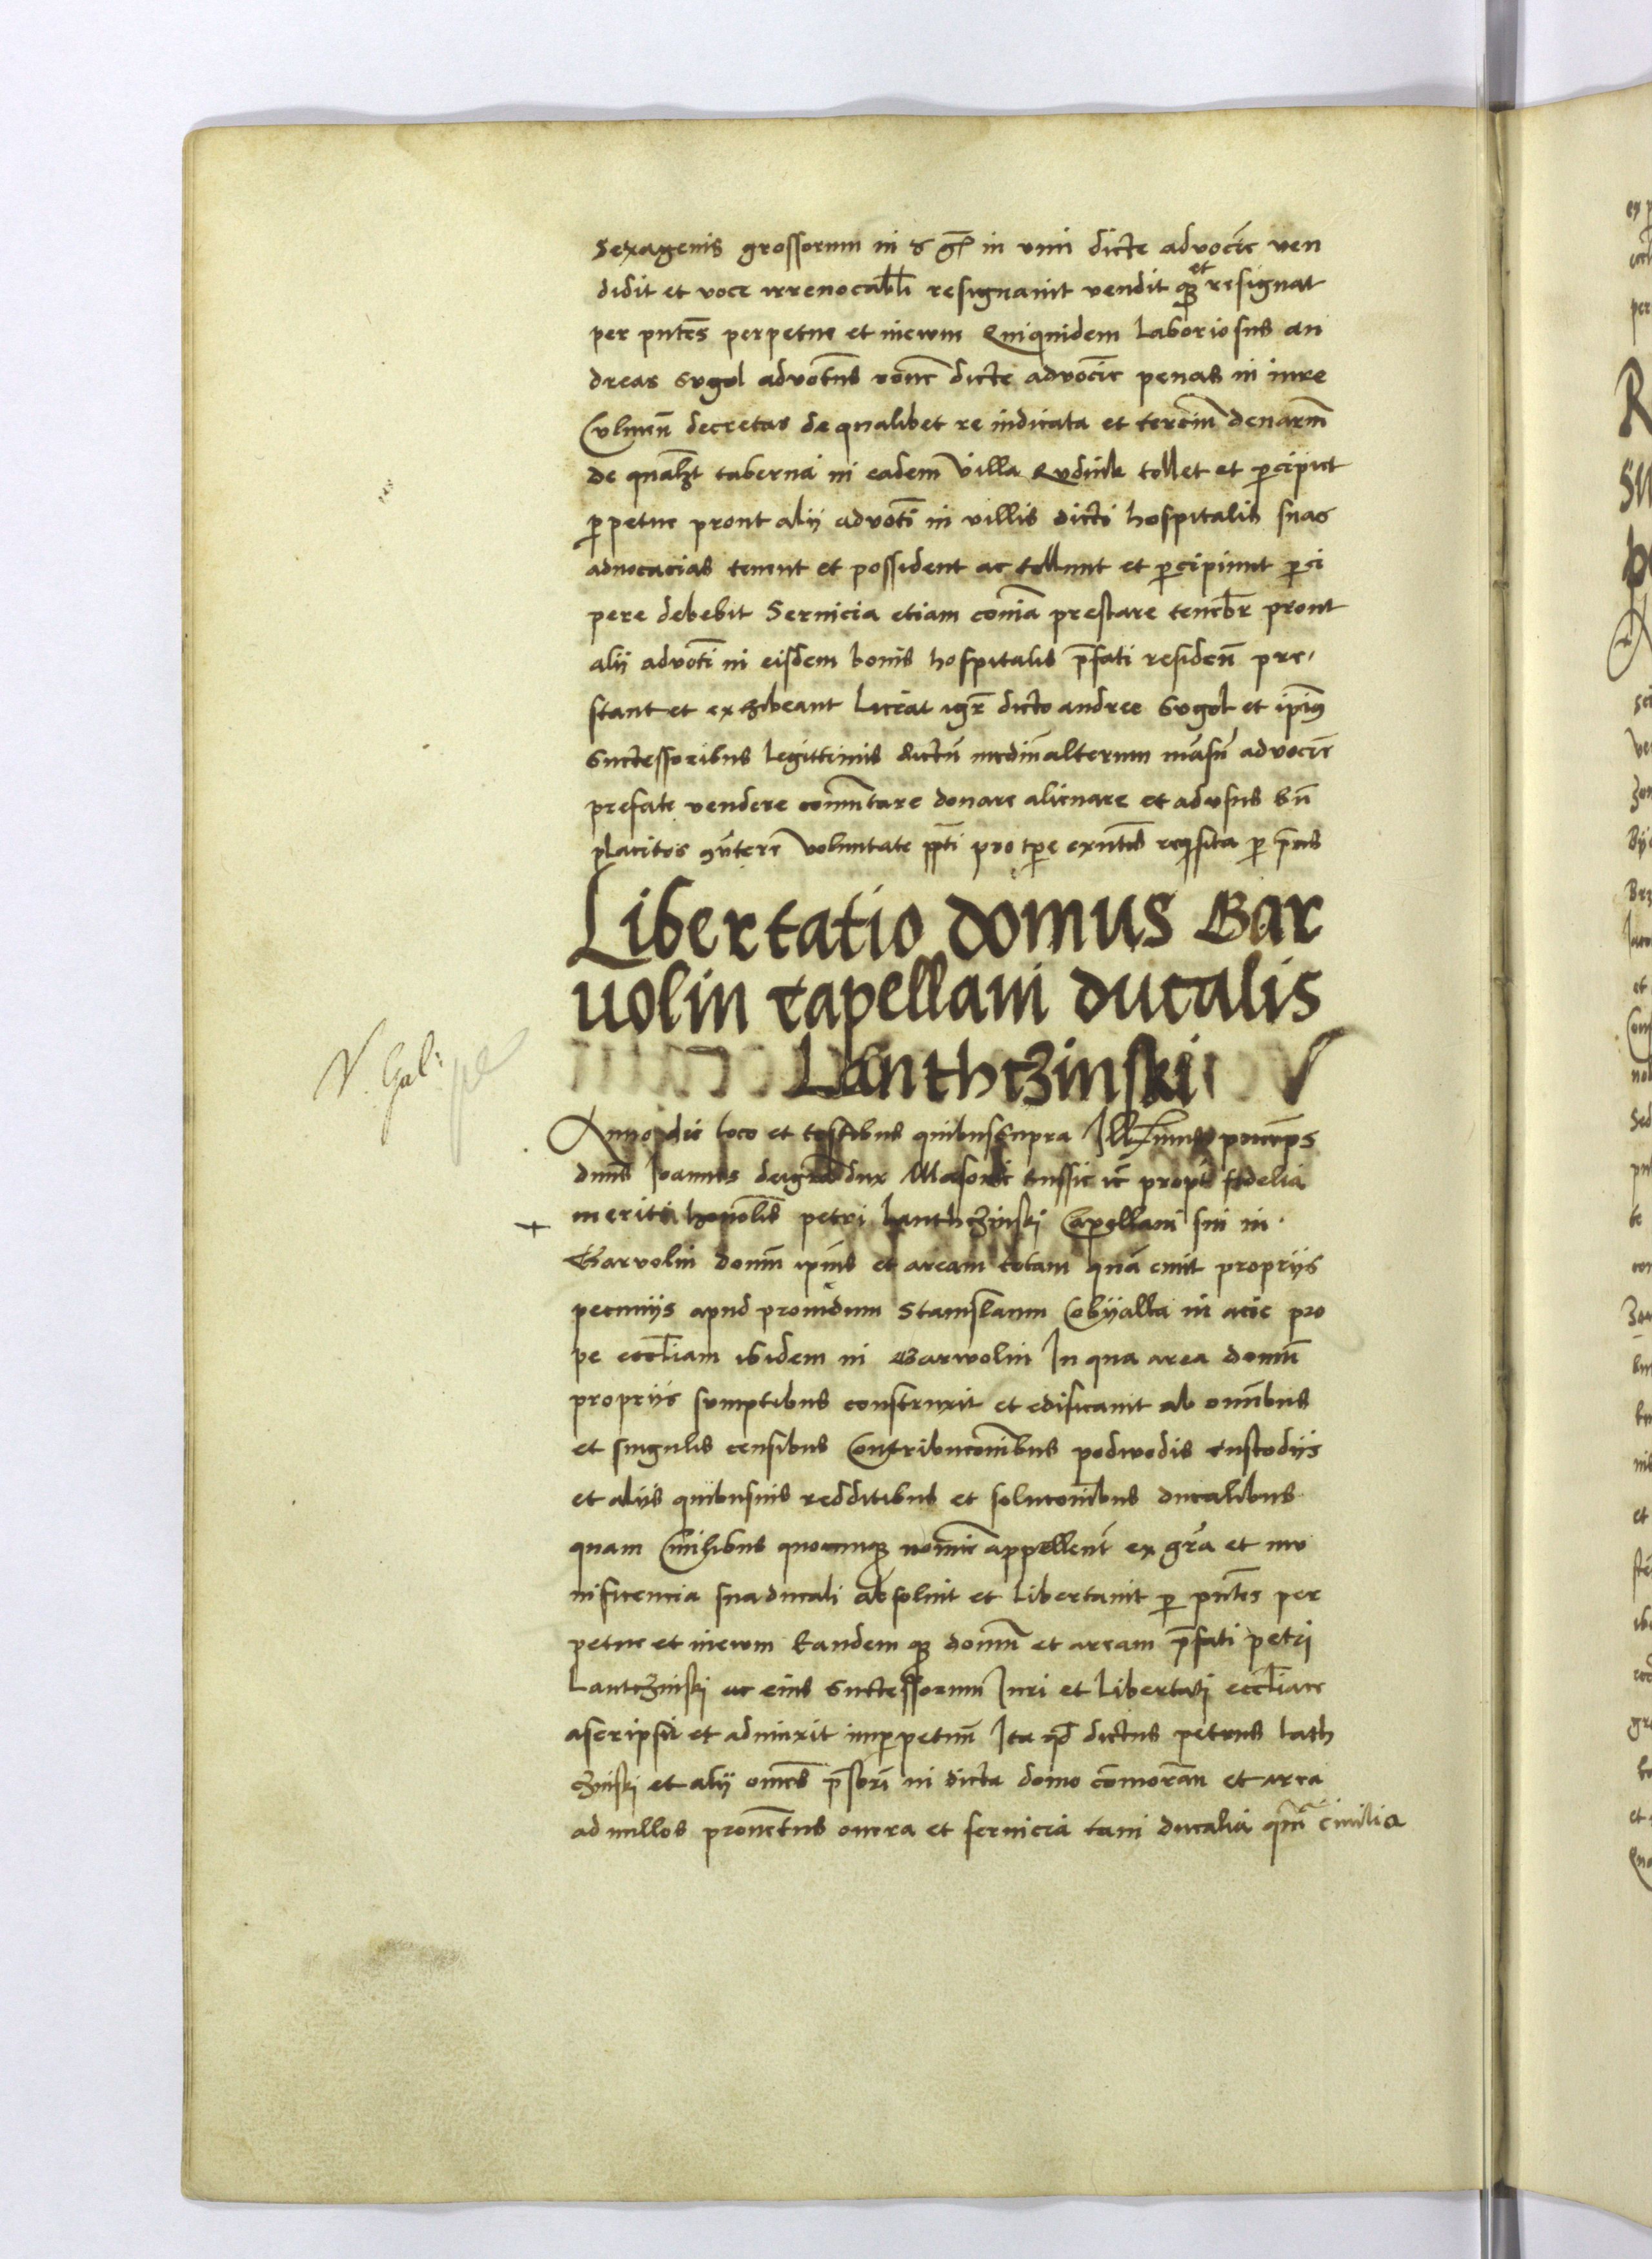 Sexagenis grossorum in & gr̃ in vim dicte advocc̃ie ven
didit et voce irrevocab̃li resignavit vendit q̨ et resignat
per pñtes perpetue et in ewm Quiquidem laboriosus an
dreas Gvgol advoc̃tus rõne dicte advoc̃ie penas in iure
Culmeñ decretas de qualibet re iudicata et terciũ denariũ
de qualz̃t taberna in eadem villa Rvdnik tollet et p̱cipiet
p̱petue prout alij advoc̃ti in villis dicti hospitalis suas
advocacias tenent et possident ac tollunt et p̱cipiunt p̱ci
pere debebit Servicia etiam coñia prestare teneb̃r prout
alij advoc̃ti in eisdem bonis hospitalis p̃fati residen̄ pre
stant et exhibeant Liceat igr̃ dicto andree Gvgol et ip̃ius
Successoribus legittimis dictũ mediũalterum mãsũ advoc̃ie
prefate vendere comutare donare alienare et ad vsus bñ
placitos 9ṽtere voluntate pp̃ti pro tp̃e exñtis req̃sita p̱ p̃ns
Libertatio domus Gar
uolin capellani ducalis
Lanthczinski
V. Gal:
Anno die loco et testibus quibus Supra Ill̃tzimus princeps
dñus Joannes dei gr̃a dux Masovie Russie ec̃ propt̃ fidelia
merita honorab̃lis petri Lanthczinski Capellani sui in
Garvolin domũ ip̃ius et aream totam quã emit proprijs
pecunijs apud providum Stanislaum Cobijalka in acie pro
pe eccl̃iam ibidem in Garwolin In qua area domũ
proprijs sumptibus construxit et edificavit ab om̃ibus
et singulis censibus Contribuconĩbus podwodis custodijs
et alijs quibusuis redditibus et soluconĩbus ducalibus
quam Civilibus quocumq̨ nomĩe appellent̃ ex gr̃a et mu
nificencia sua ducali absoluit et libertavit p̱ pñtes per
petue et in ewm Eandem q̨ domũ et aream p̃fati petri
Lantczinski ac eius Successorum Iuri et libertati eccl̃iare
ascripsit et adiunxit imp̱petuũ Ita qd̃ dictus petrus lath
czinski et alij om̃es p̃sbr̃i in dicta domo comorañ et area
ad nullos prouẽtus onera et seruicia tam ducalia qm̃ civilia